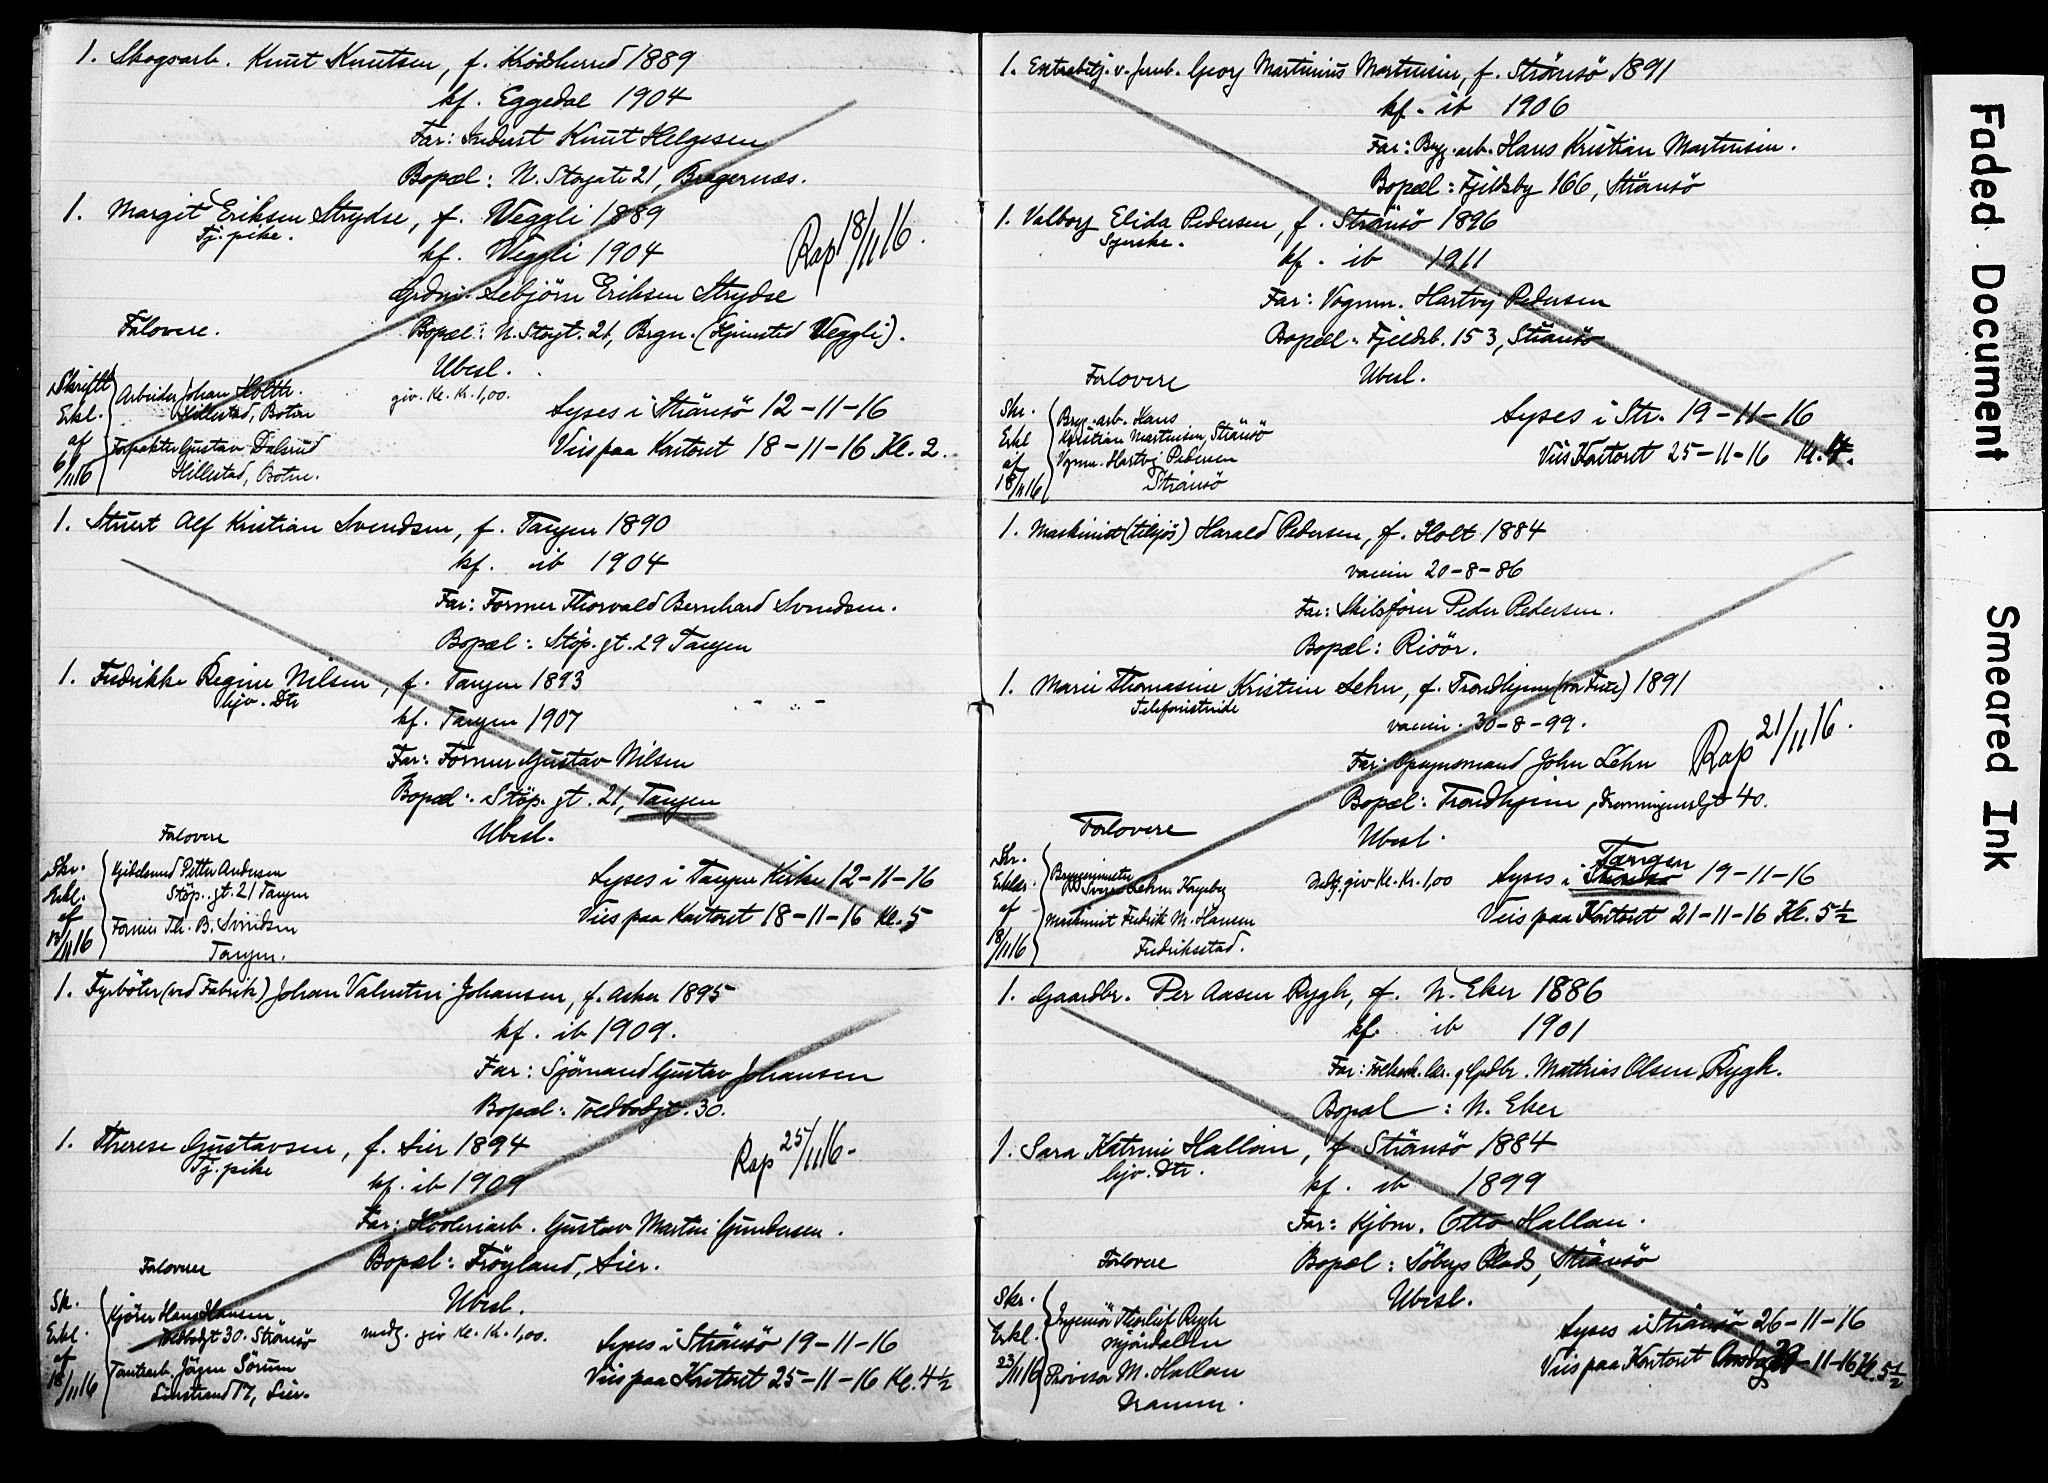 1. Skogsarb. Knut Knutsen, f. Krödsherred 1889
kf. Eggedal 1904
Far: Inderst Knut Helgesen
Bopæl: N. Storgate 21, Bragernæs.
1. Margit Eriksen Strydse, f. Veggli 1889
Tj. pike.
kf. Veggli 1904
Rap 18/11 16.
Grdmr. Sebjörn Eriksen Strydse
Forlovere.
Bopæl: N. Storgt. 21, Brgn. (Hjemsted Veggli).
Ubesl.
Skriftl. Erkl. af 6/11 16
Arbeider Johan Holtte
Hillestad, Botne
giv. Kl. Kr. 1,00.
Lyses i Strömsö 12-11-16
Forpakter Gustav Dalsrud
Hillestad, Botne.
Vies paa Kontoret 18-11-16 Kl. 2.
1. Stuert Alf Kristian Svendsen, f. Tangen 1890
kf. ib 1904
Far: Former Thorvald Bernhard Svendsen.
Bopæl: Stöp. gt. 29 Tangen
1. Fredrikke Regine Nilsen, f. Tangen 1893
hjv. Dtr
kf. Tangen 1907
Far: Former Gustav Nilsen
Bopæl: Stöp. gt. 21, Tangen
Forlovere
Ubesl.
Skr. Erkl. af 13/11 16
Kjedelsmed Petter Andersen
Stöp. gt. 21 Tangen
Lyses i Tangen Kirke 12-11-16
Former Th. B. Svendsen
Tangen.
Vies paa Kontoret 18-11-16 Kl. 5
1. Fyrböter (ved Fabrik) Johan Valentin Johansen, f. Asker 1895
kf. ib 1909.
Far: Sjömand Gustav Johansen
Bopæl: Toldbodgt. 30.
1. Therese Gustavsen, f. Lier 1894
Tj. pike
Rap 25/11 16-
kf. ib 1909
Far: Hövleriarb. Gustav Martin Gundersen.
Forlovere
Bopæl: Fröyland, Lier.
Ubesl.
Sk. Erkl. af 18/11 16
Kjörer Hans Hansen
Toldbodgt 30. Strömsö
medg. giv Kl. Kr. 1,00.
Lyses i Strömsö 19-11-16
Tomtearb. Jörgen Sörum
Linstrand 17, Lier.
Vies paa Kontoret 25-11-16 Kl. 4½
1. Extrabetj. v. Jernb. Georg Martinius Martinsen, f. Strömsö 1891
kf. ib 1906
Far: Bryg. arb. Hans Kristian Martinsen.
Bopæl: Fjeldsby 166, Strömsö
1. Valborg Elida Pedersen, f. Strömsö 1896
Syerske.
kf. ib 1911
Far: Vognm. Hartvig Pedersen
Bopæl: Fjeldsb. 153, Strömsö
Forlovere
Ubesl.
Skr. Erkl af 18/11 16
Bryg. arb. Hans
Kristian Martinsen, Strömsö
Lyses i Str. 19-11-16
Vognm. Hartvig Pedersen
Strömsö
Vies Kontoret 25-11-16 Kl. 4.
1. Maskinist (tilsjös) Harald Pedersen, f. Holt 1884
vaccin 20-8-86
Far: Skibsförer Peder Pedersen.
Bopæl: Risör.
1. Marie Thomasine Kristine Lehn, f. Trondhjem (Vor Frue) 1891
Telefonistinde
vaccin. 30-8-99.
Rap 21/11 16.
Far: Opsynsmand John Lehn
Bopæl: Trondhjem, Dronningensgt 40.
Forlovere
Ubesl.
Skr. Erklær. af 18/11 16
Sverre Lehn. Krageby
Medg. giv Kl. Kr. 1,00
Lyses i Strömsö Tangen 19-11-16
Maskinist Fredrik M. Hansen
Fredriksstad.
Vies paa Kontoret 21-11-16 Kl. 5½
1. Gaardbr. Per Aasen Rygh, f. N. Eker 1886
kf. ib 1901
Far: Folkesk. lær. og Grdbr. Mathias Olsen Rygh.
Bopæl: N. Eker
1. Sara Katrine Hallan, f. Strömsö 1884
hjv. Dtr.
kf. ib 1899
Far: Kjbm. Otto Hallan.
Forlovere
Bopæl: Söbergs Plads, Strömsö
Ubesl.
Skr. Erkl. 23/11 16
Ingeniör Thorleif Rygh
Mjöndalen
Lyses i Strömsö 26-11-16
Provisor M. Hallan
Dramm.
Vies paa Kontoret Onsdag 29-11-16 Kl. 5½
Faded Document
Smeared Ink